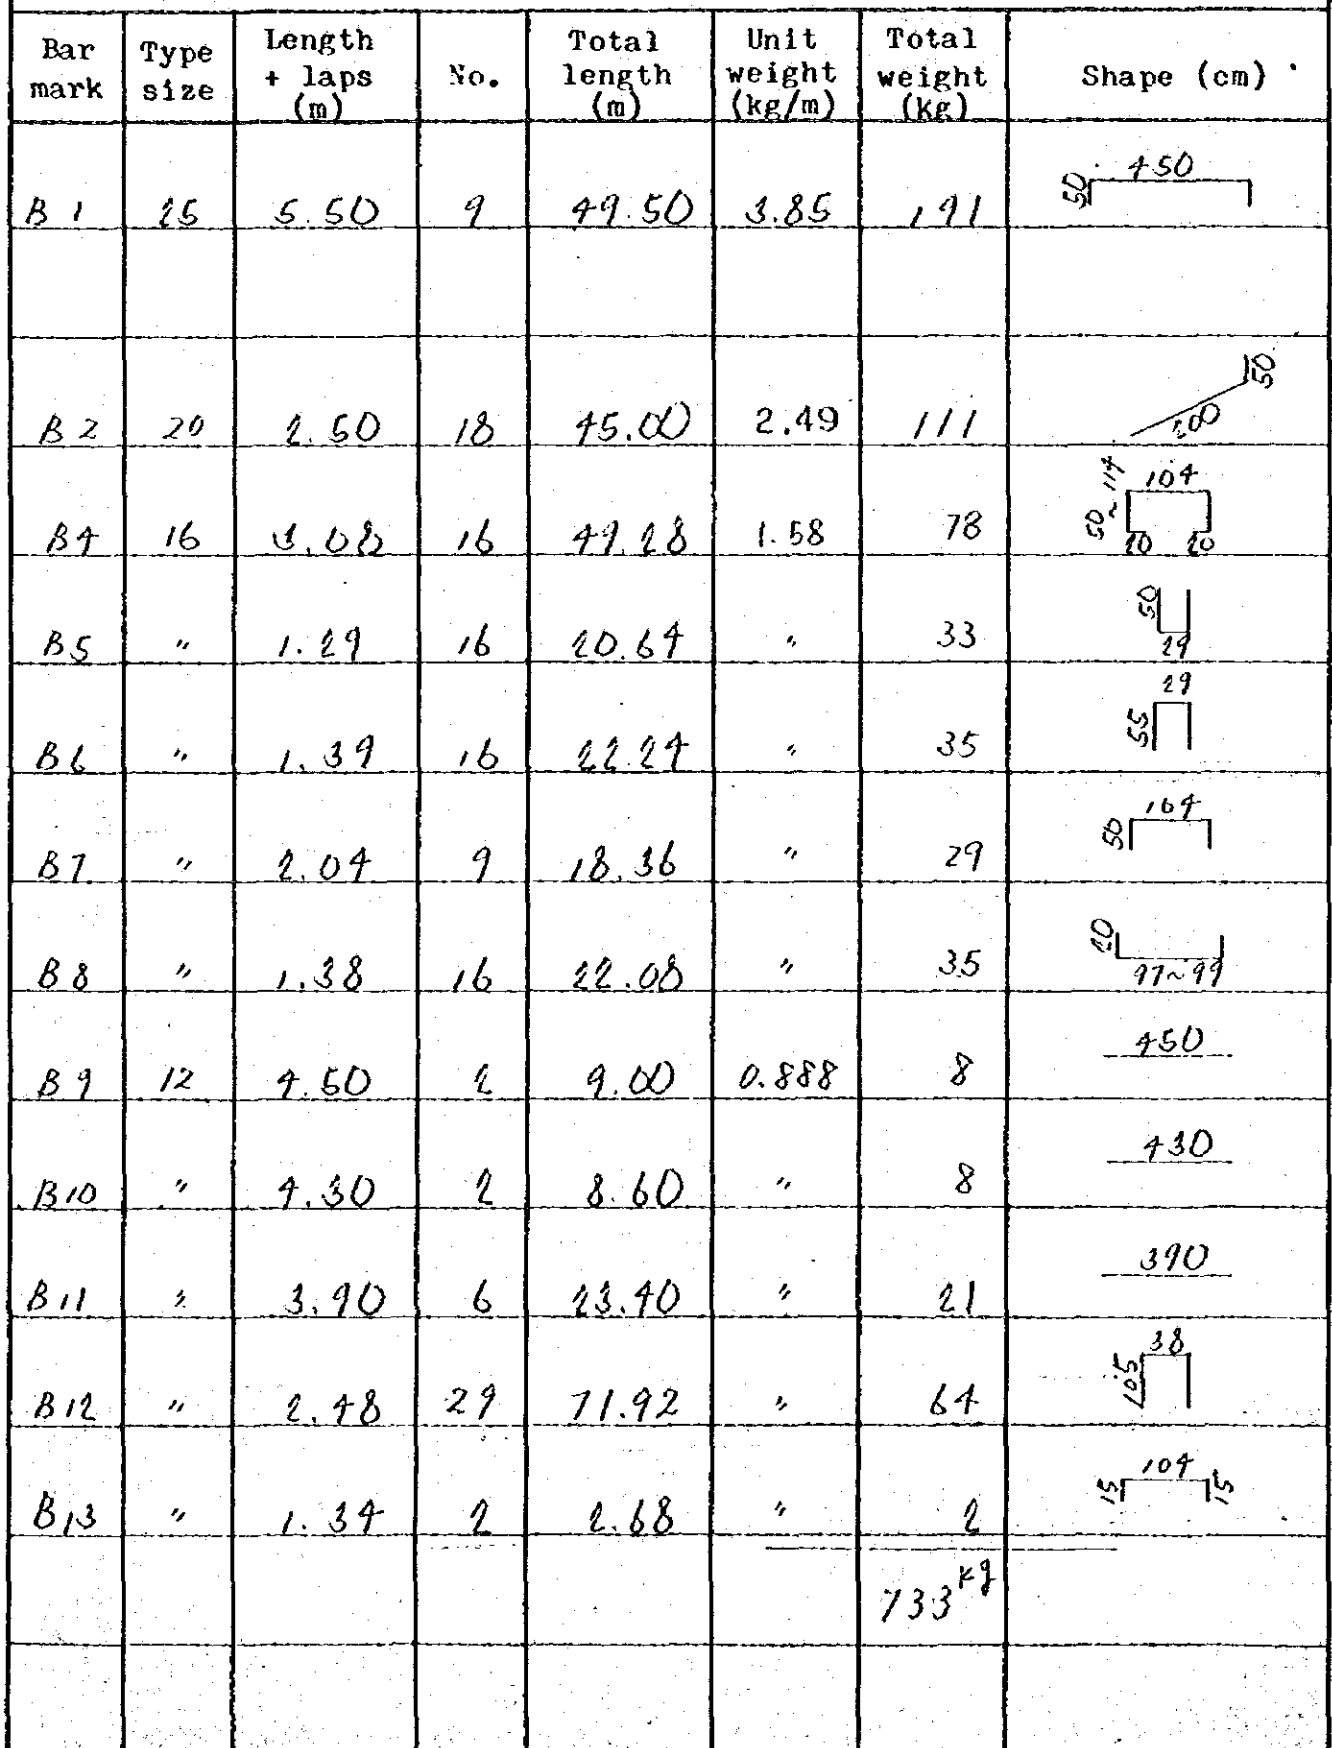 Bar mark | Type size | Length + laps (m) | No. | Total length (m) | Unit weight (kg/m) | Total weight (Kg) | Shape (cm)
B 1 | 25 | 5.50 | 9 | 49.50 | 3.85 | 191 | 50 450
B 2 | 20 | 2.50 | 18 | 45.00 | 2.49 | 111 | 200 50
B4 | 16 | 3.08 | 16 | 49.28 | 1.58 | 78 | 50~114 104 20 20
B5 | " | 1.29 | 16 | 20.64 | " | 33 | 50 29
B6 | " | 1.39 | 16 | 22.24 | " | 35 | 55 29
B7 | " | 2.04 | 9 | 18.36 | " | 29 | 50 104
B8 | " | 1.38 | 16 | 22.08 | " | 35 | 20 97~99
B9 | 12 | 4.50 | 2 | 9.00 | 0.888 | 8 | 450
B10 | " | 4.30 | 2 | 8.60 | " | 8 | 430
B11 | " | 3.90 | 6 | 23.40 | " | 21 | 390
B12 | " | 2.48 | 29 | 71.92 | " | 64 | 105 38
B13 | " | 1.34 | 2 | 2.68 | " | 2 | 15 104 15
733 kg